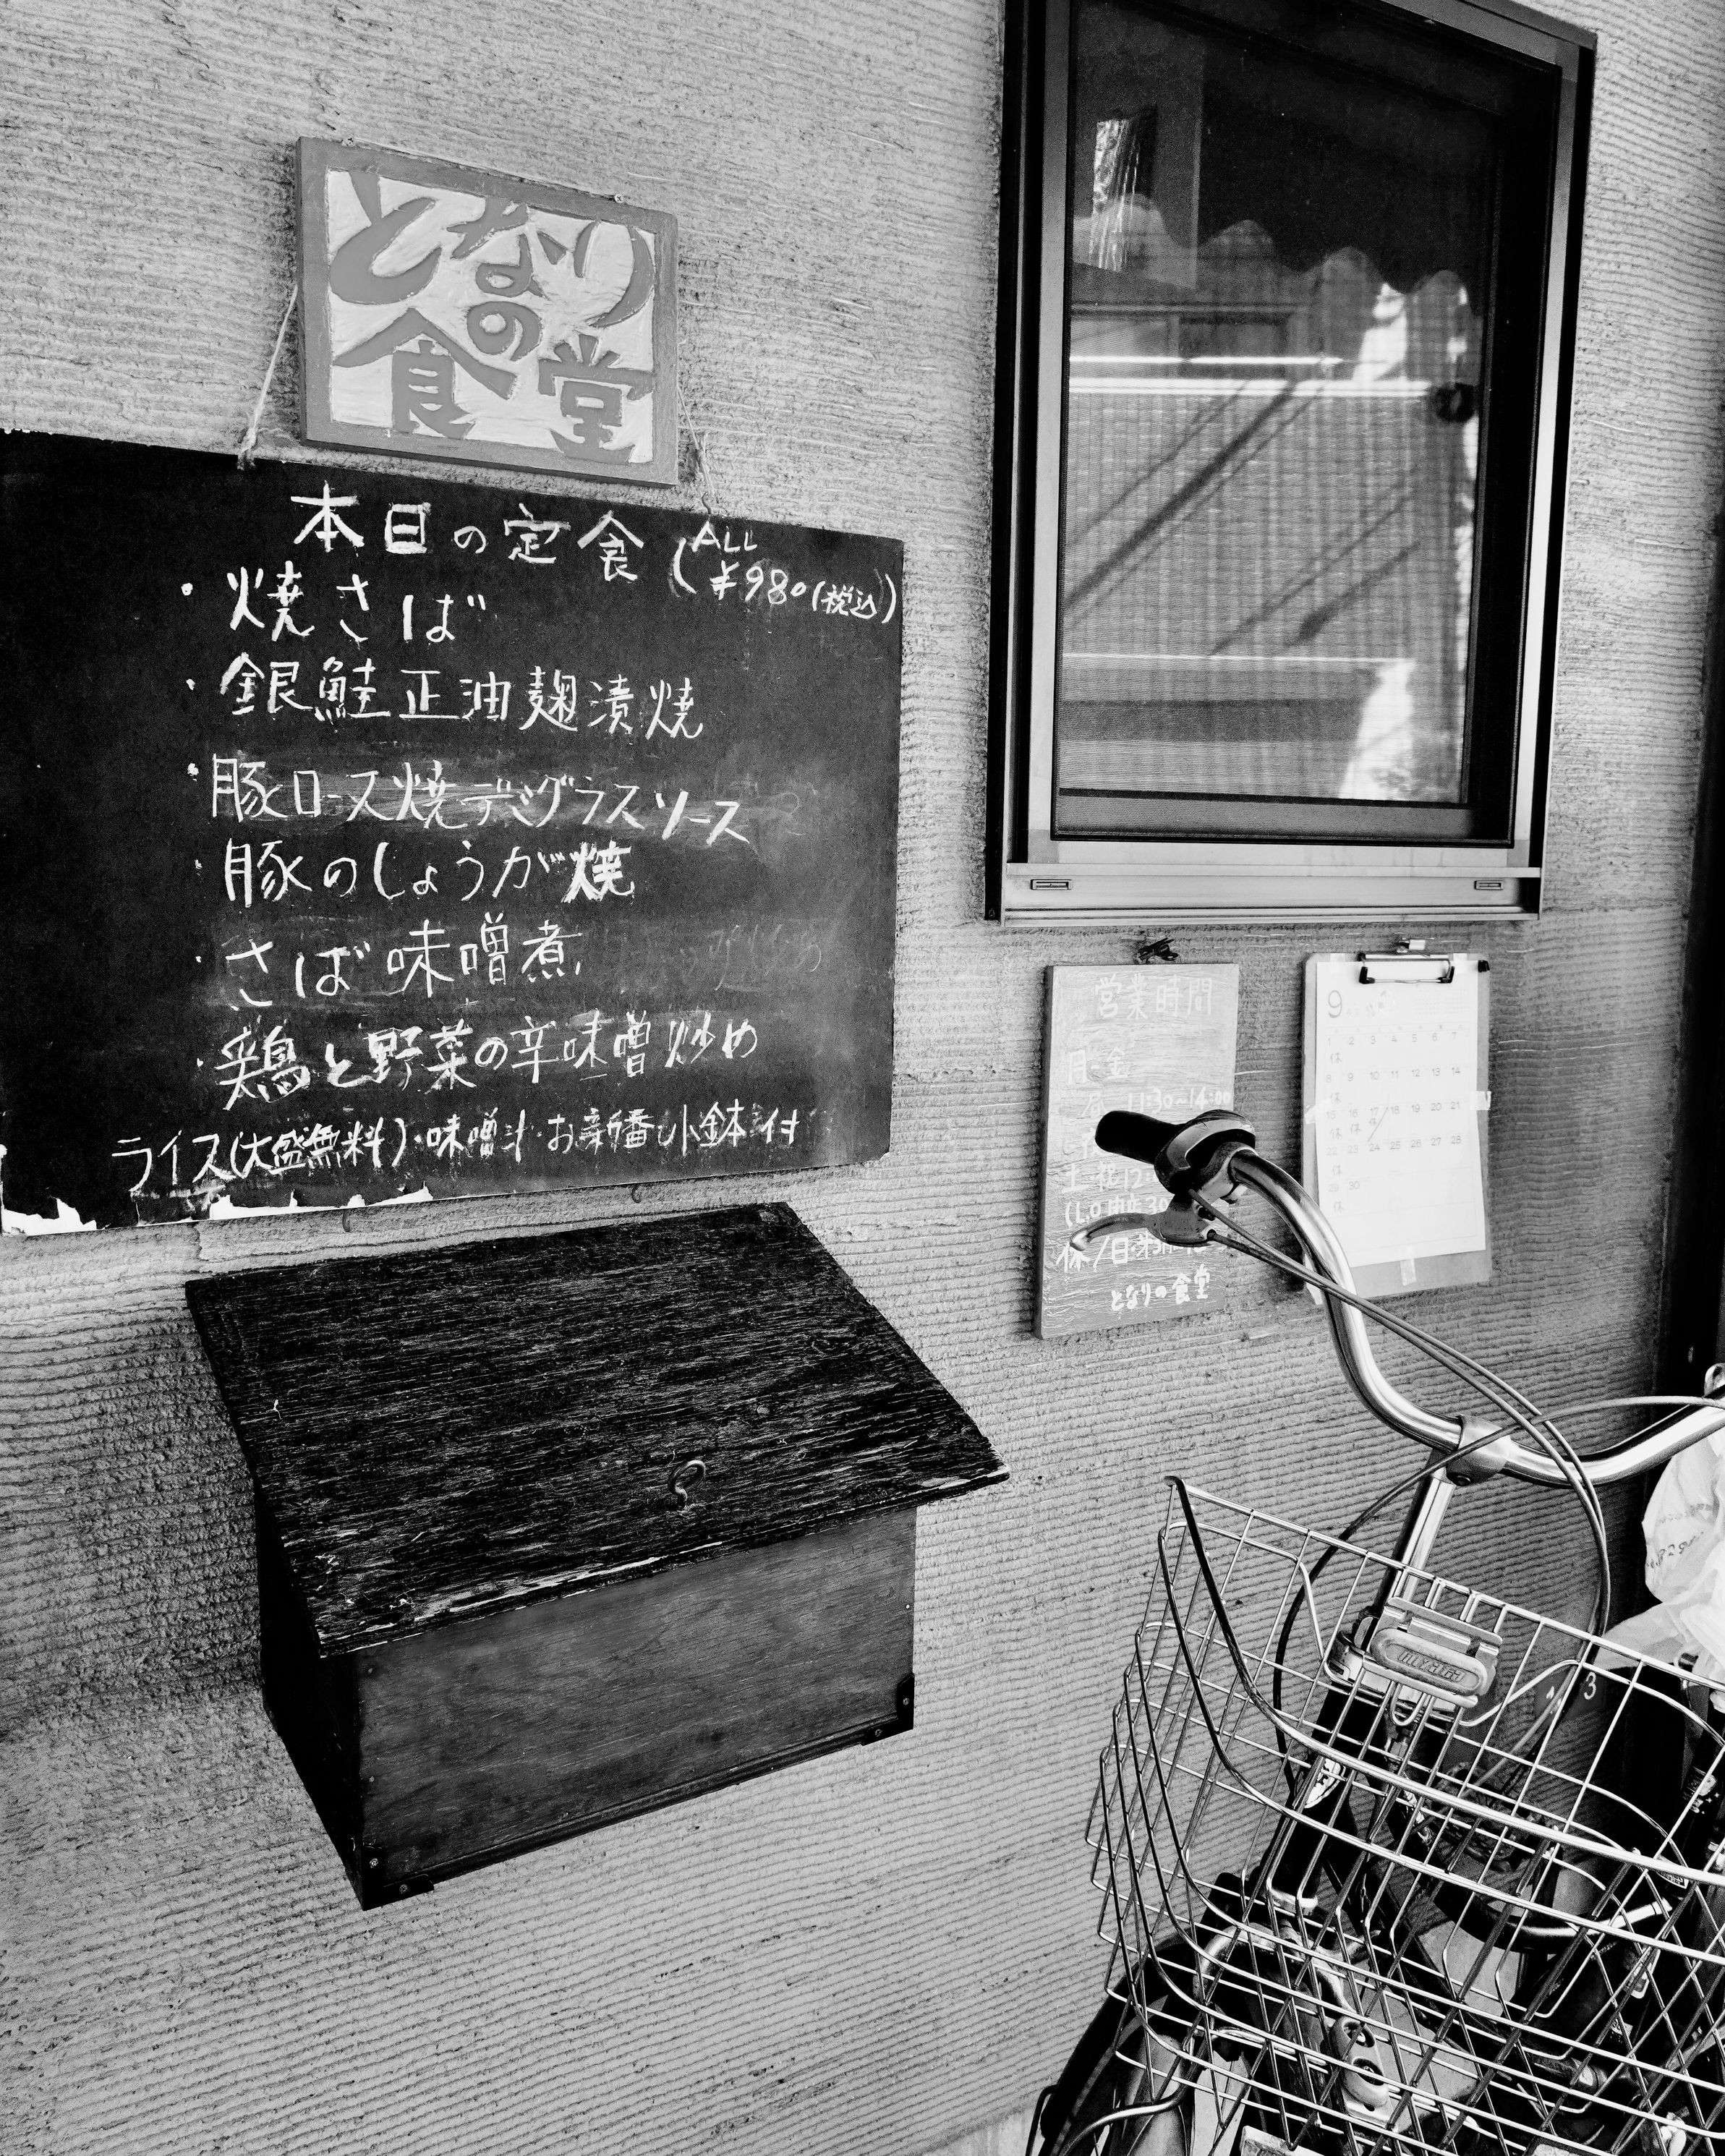 となり
の
食堂
本日の定食 (ALL
¥980(税込))
・焼さば
・銀鮭正油麹漬焼
・豚ロース焼デミグラスソース
・豚のしょうが焼
・さば味噌煮
・鶏と野菜の辛味噌炒め
ライス(大盛無料)・味噌汁・お新香・小鉢付
営業時間
月 金
11:30~14:00
土 祝12
(L.O
休/日
となりの食堂
9
1 2 3 4 5 6 7
休
8 9 10 11 12 13 14
15 16 17 18 19 20 21
休 休
22 23 24 25 26 27 28
休
29 30
休
MIYATA
3